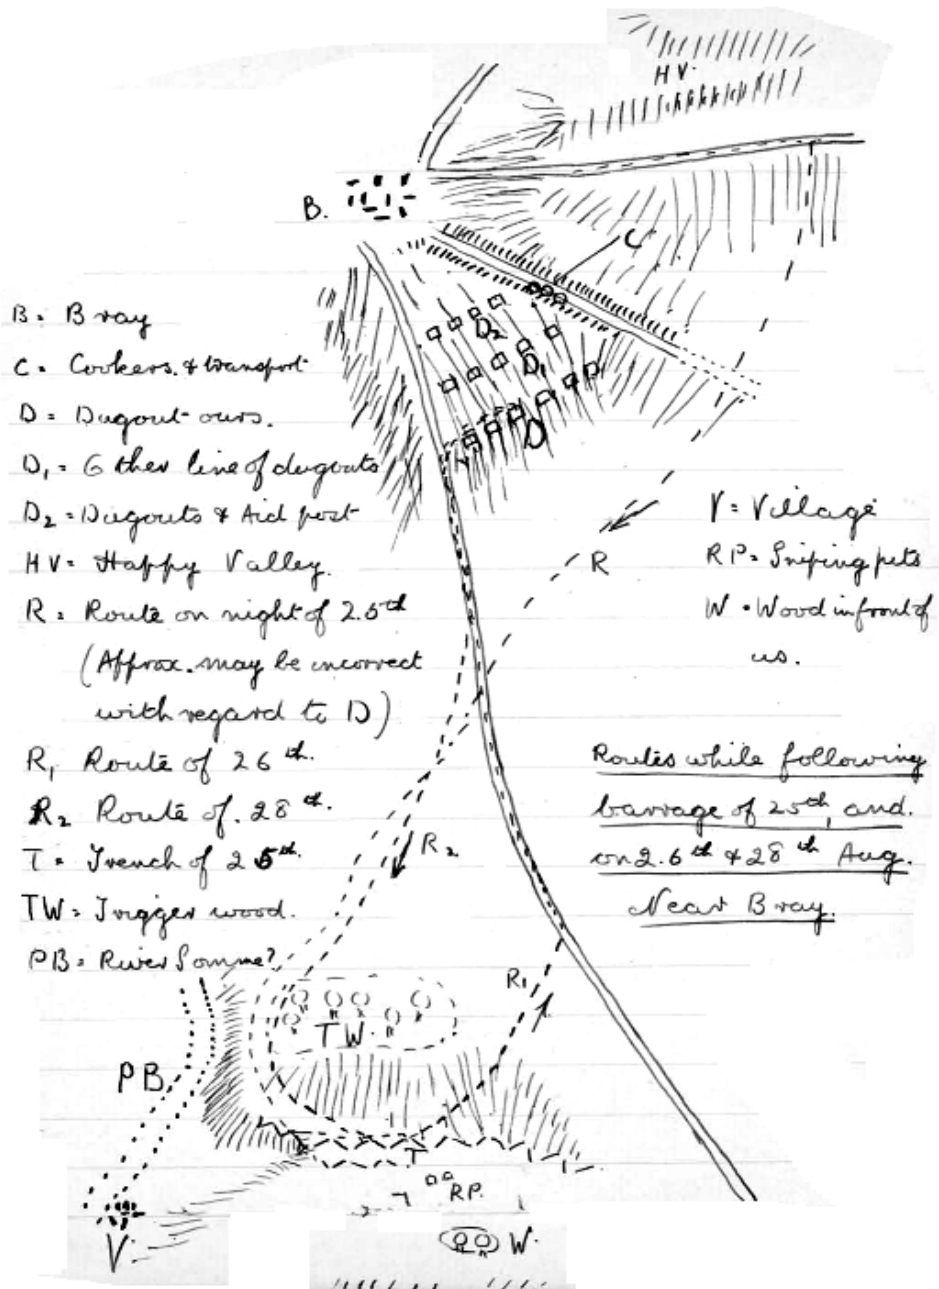 HV.
B.
C
D2
D1
D
B = Bray
C = Cookers. & transport
D = Dugout ours.
D1 = Other line of dugouts
D2 = Dugouts & Aid post
HV = Happy Valley.
R = Route on night of 25th
(Approx. may be incorrect
with regard to D)
R1 Route of 26th.
R2 Route of. 28th.
T = Trench of 25th.
TW = Trigger wood.
PB = River Somme?
R
V = Village
RP = Sniping pits
W = Wood in front of
us.
Routes while following
barrage of 25th, and.
on 26th & 28th Aug.
Near Bray.
R2
R1
TW.
PB
T
RP.
W.
V